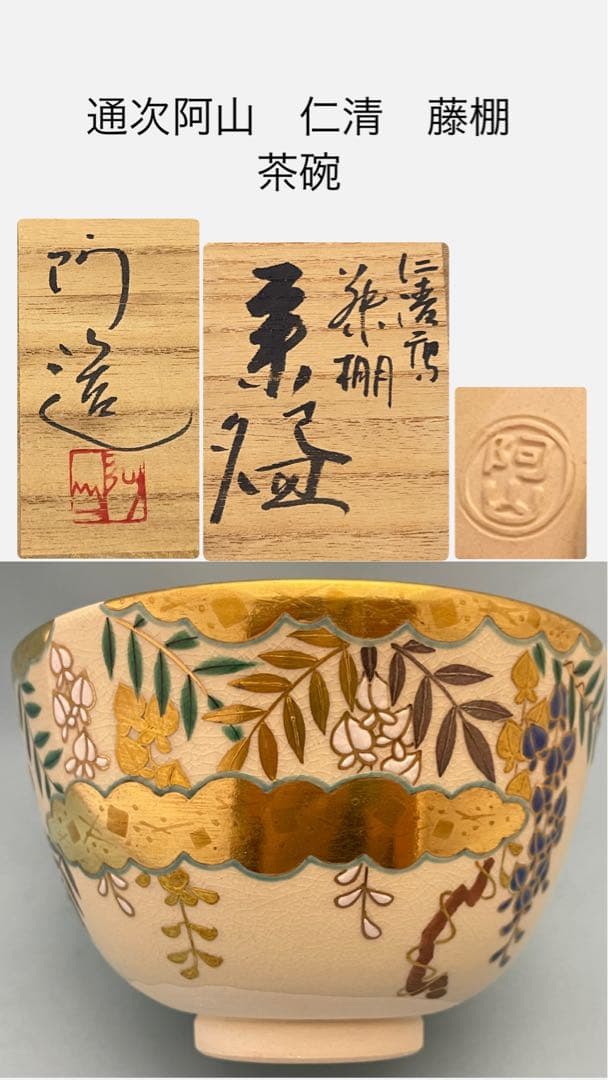 通次阿山　仁清　藤棚
茶碗
仁清写
藤棚
茶碗
阿
阿山